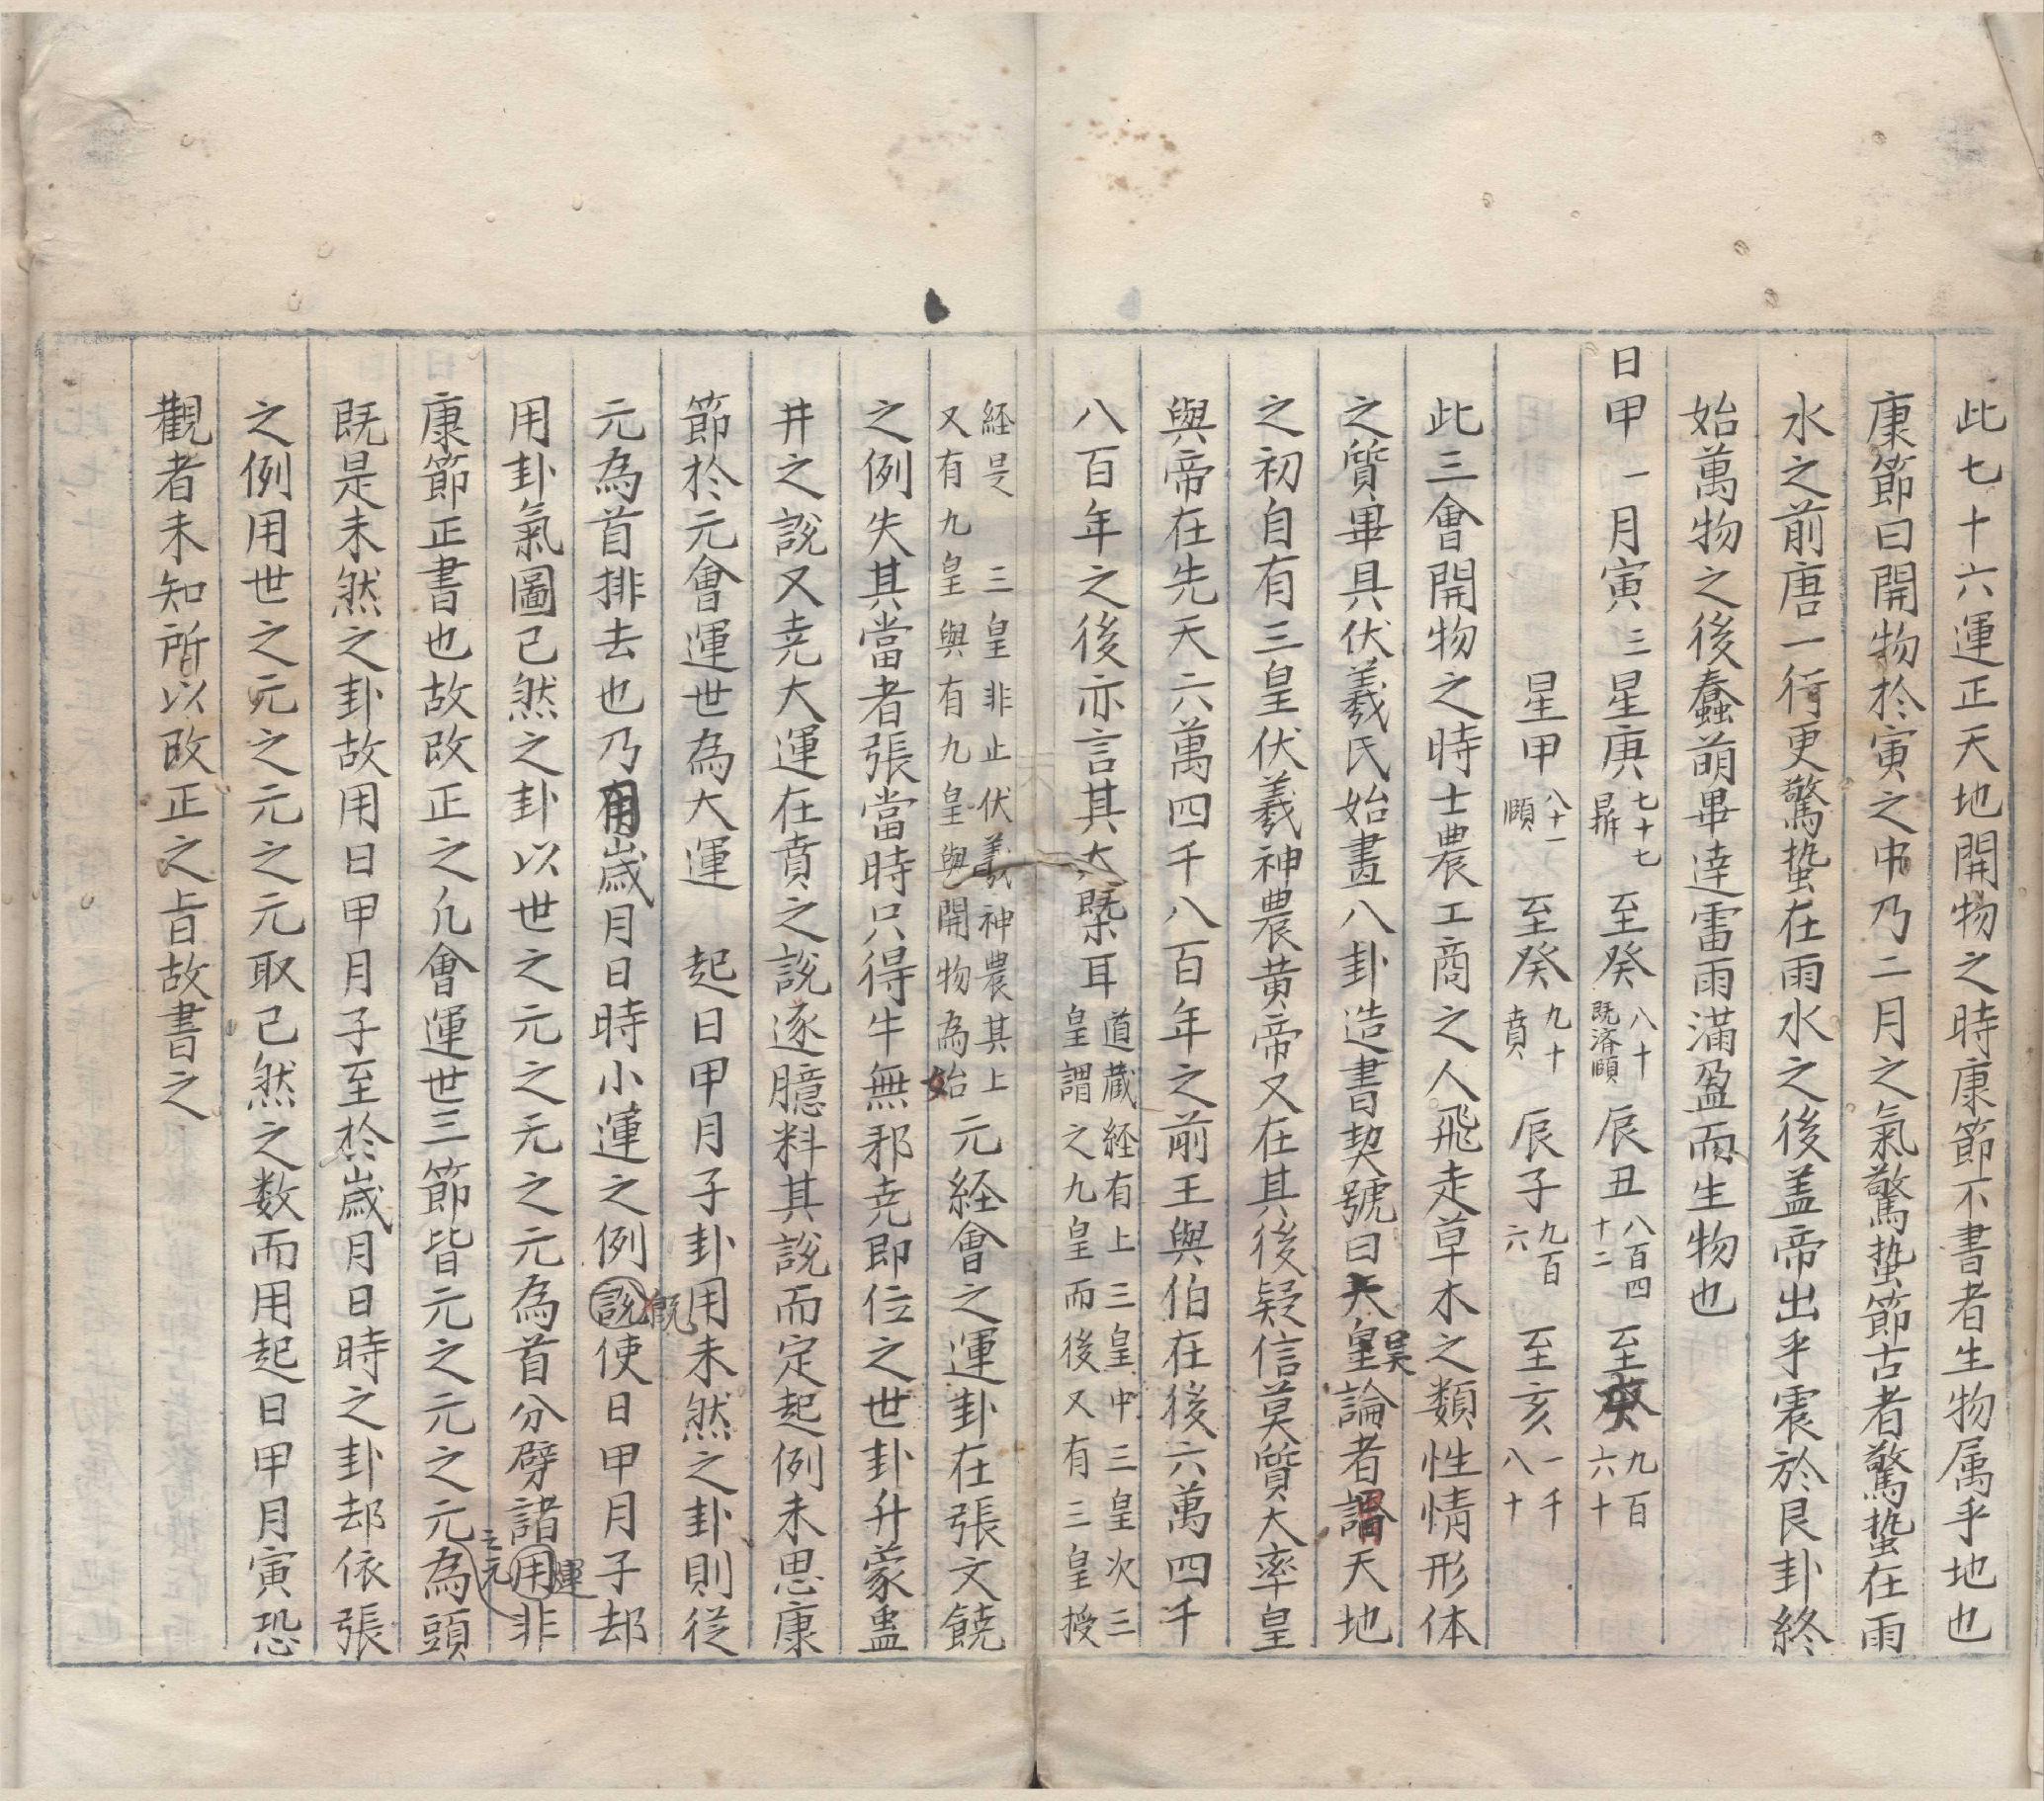 此七十六運正天地開物之時康節不書者生物属乎地也
康節曰開物於寅之中乃二月之氣驚蟄節古者驚蟄在雨
水之前唐一行更驚蟄在雨水之後盖帝出乎震於艮卦終
始萬物之後蠢萌畢逹雷雨滿盈而生物也
日甲一月寅三星庚七十七至癸八十既济頤辰丑八百四十二至亥九百六十
星甲八十一頤至癸九十賁辰子九百六至亥一千八十
此三會開物之時士農工商之人飛走草木之類性情形体
之質畢具伏羲氏始畫八卦造書契號曰天皇昊論者謂天地
之初自有三皇伏羲神農黄帝又在其後疑信莫質大率皇
與帝在先天六萬四千八百年之前王與伯在後六萬四千
八百年之後亦言其大槩耳道蔵経有上三皇中三皇次三皇謂之九皇而後又有三皇授
経是 三皇非止伏羲神農其上又有九皇與有九皇與開物為始元経會之運卦在張文饒
之例失其當者張當時只得牛無邪尭即位之世卦升蒙蛊
井之說又尭大運在賁之說逐臆料其說而定起例未思康
節於元會運世為大運 起日甲月子卦用未然之卦則従
元為首排去也乃用歲月日時小運之例說既使日甲月子却
用卦氣圖已然之卦以世之元之元之元為首分劈諸用運非
康節正書也故改正之凡會運世三節皆元之元之元之元為頭
既是未然之卦故用日甲月子至於歲月日時之卦却依張
之例用世之元之元之元取已然之数而用起日甲月寅恐
觀者未知所以改正之旨故書之